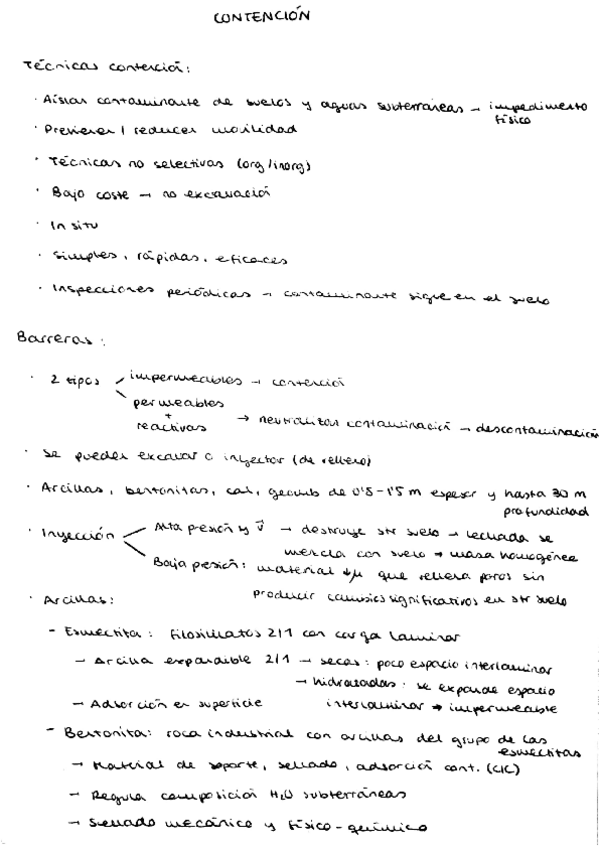 CONTENCIÓN
Técnicas contención:
· Aislar contaminante de suelos y aguas subterráneas → impedimento
físico
· Prevenir / reducir movilidad
· Técnicas no selectivas (org/inorg)
· Bajo coste → no excavación
· In situ
· Simples, rápidas, eficaces
· Inspecciones periódicas → contaminante sigue en el suelo
Barreras:
· 2 tipos impermeables → contención
permeables
+
reactivas → neutralizar contaminación → descontaminación
· Se pueden excavar o inyectar (de relleno)
· Arcillas, bentonitas, cal, geomb de 0'5-1'5 m espesor y hasta 30 m
profundidad
· Inyección Alta presión y v⃗ → destruye str suelo → lechada se
mezcla con suelo → masa homogénea
Baja presión: material ↓μ que rellena poros sin
producir cambios significativos en str suelo
· Arcillas:
- Esmectita: filosilicatos 2/1 con carga laminar
→ Arcilla expandible 2/1 → secas: poco espacio interlaminar
→ hidratadas: se expande espacio
interlaminar → impermeable
→ Adsorción en superficie
- Bentonita: roca industrial con arcillas del grupo de las
esmectitas
→ Material de soporte, sellado, adsorción cont. (CIC)
→ Regula composición H2O subterráneas
→ Sellado mecánico y físico-químico